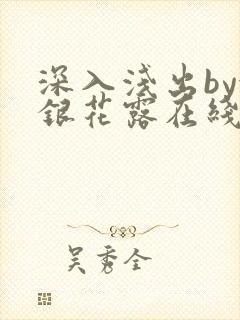 深入浅出by
銀花露在綫
吴秀全